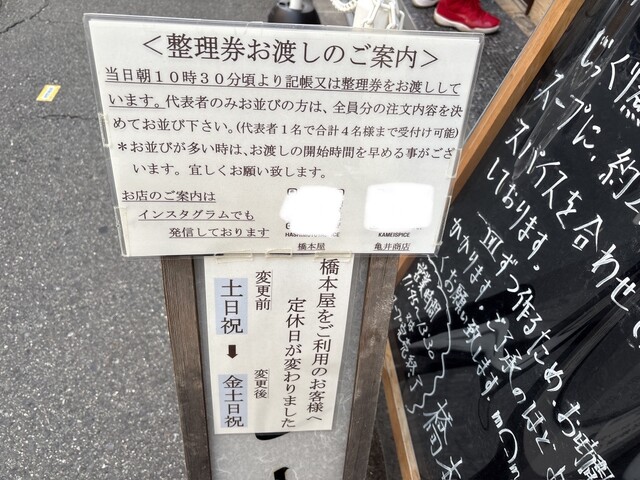 ＜整理券お渡しのご案内＞
当日朝１０時３０分頃より記帳又は整理券をお渡しして
います。代表者のみお並びの方は、全員分の注文内容を決
めてお並び下さい。(代表者１名で合計４名様まで受付け可能)
＊お並びが多い時は、お渡しの開始時間を早める事がござ
います。宜しくお願い致します。
お店のご案内は
インスタグラムでも
発信しております
KAMEISPICE
橋本屋
亀井商店
橋本屋をご利用のお客様へ
定休日が変わりました
変更前
土日祝
変更後
金土日祝
じっく
スープに、約2
スパイスを合わせ
しております。
皿ずつ作るため、お時間
かかります。ご了承のほど
お願い致します。m(_ _)m
営業時間
橋本